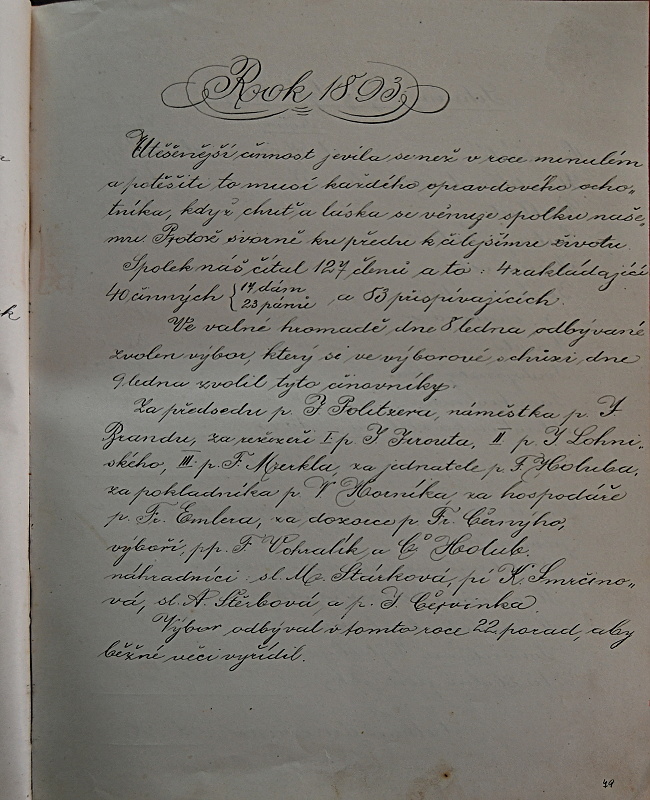 Rok 1893.
Utěšenější činnost jevila se než v roce minulém
a potěšiti to musí každého opravdového ocho„
tníka, když chuť a láska se věnuje spolku naše„
mu. Protož svorně ku předu k čilejšímu životu.
Spolek náš čítal 127 členů a to: 4 zakládající
40 činných { 17 dám
23 pánů , a 83 přispívajících.
Ve valné hromadě, dne 8 ledna odbývané
zvolen výbor, který si ve výborové schůzi dne
9 ledna zvolil tyto činovníky.
Za předsedu p. J Politzera, náměstka p. J
Brandu, za režiséři I p. J Jirouta, II p. J. Lohni„
ského, III. p. F. Mzerkla, za jednatele p. F. Holuba,
za pokladníka p. V Horníka, za hospodáře
p. Fr. Emlera, za dozorce p. Fr. Černýho,
výboři, pp. F. Vohralík a Č. Holub.
náhradníci: sl. M. Stárková, pí K. Smrčino„
vá, sl. A. Štěrbová, a p. J Červinka.
Výbor odbýval v tomto roce 22 porad, aby
běžné věci vyřídil.
49
k